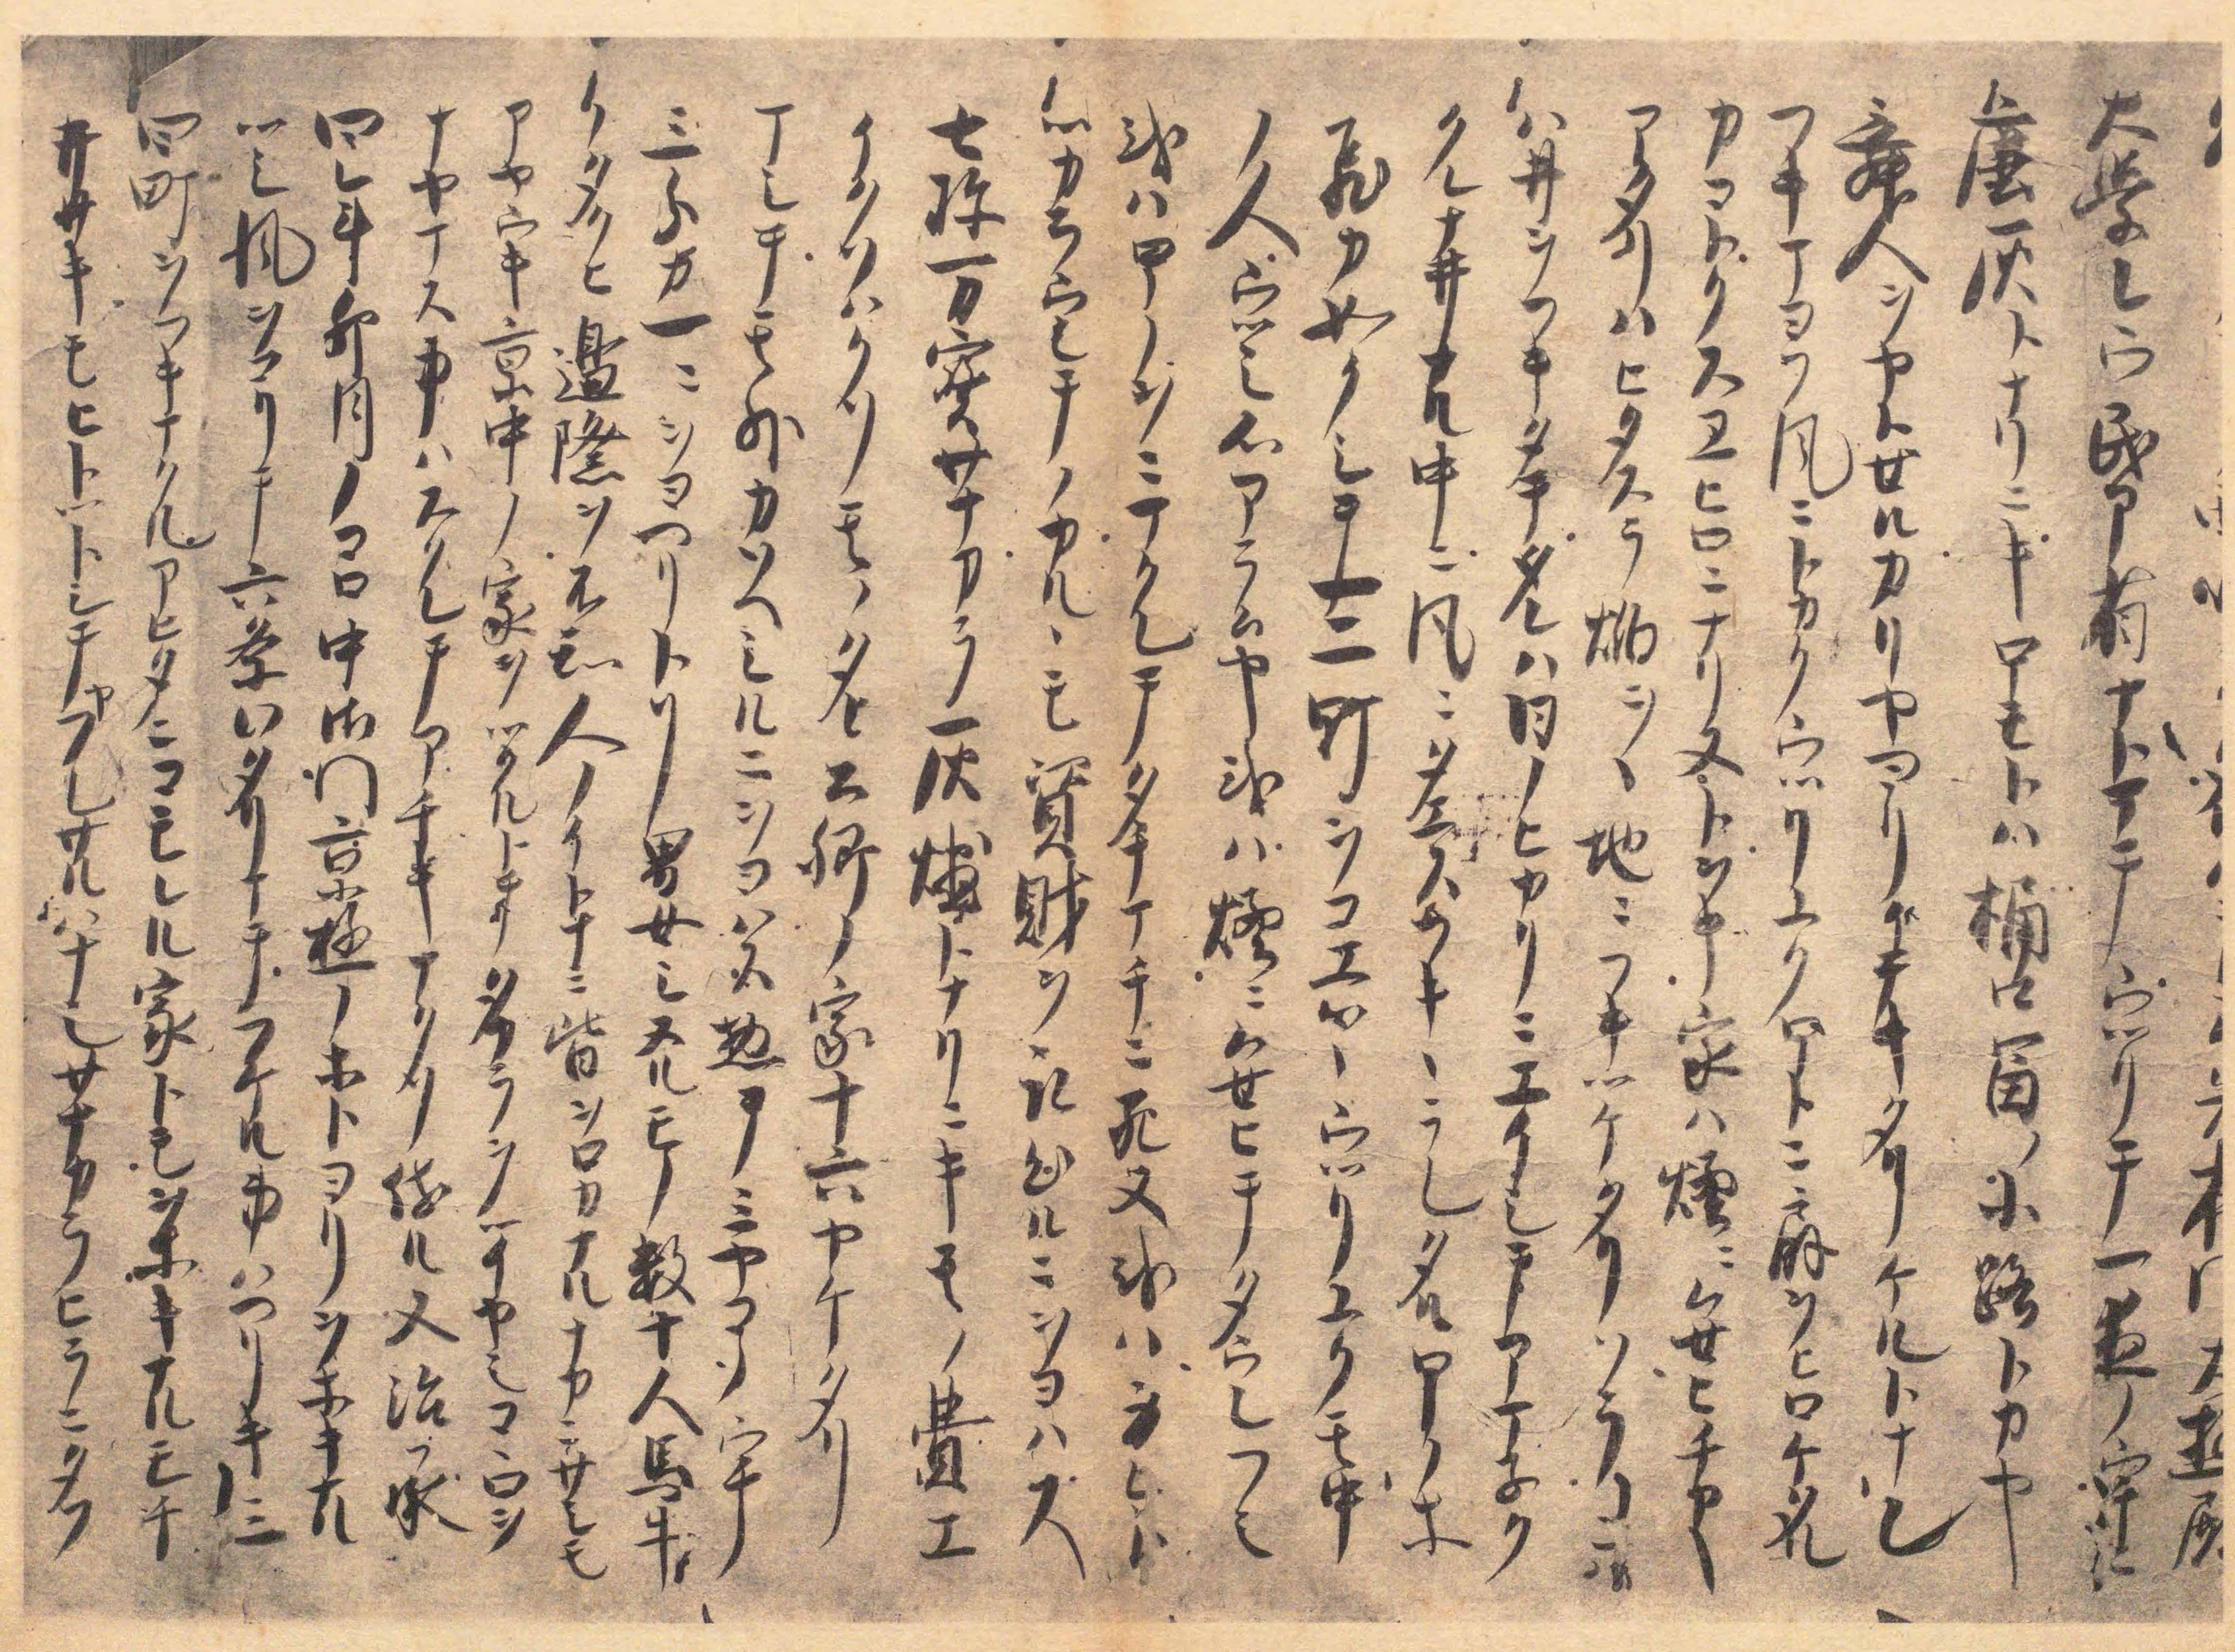 朱雀門大極殿
大學レウ民部省ナトマテウツリテ一夜ノウチニ
塵灰トナリニキホモトハ桶口冨ノ小路トカヤ
舞人ヲヤトセルカリヤヨリイテキタリケルトナン
フキマヨフ風ニトカクウツリユクホトニ扇ヲヒロケタル
カコトクスヱヒロニナリヌトヲキ家ハ煙ニムセヒチカキ
アタリハヒタスラ焔ヲヽ地ニフキツケタリソラニハ
ハ井ヲフキタテタレハ日ノヒカリニエイシテアマネク
クレナ井ナル中ニ風ニタエスフキヽラレタルホノホ
飛カ如クシテ一二町ヲコエツヽウツリユク其中
ノ人ウツシ心アラムヤ或ハ煙ニムセヒテタウレフシ
或ハホノヲニマクレテタチマチニ死ヌ或ハ身ヒト
ツカラウシテノカルヽモ資財ヲ取出ルニヲヨハス
七珎万寳サナカラ灰燼トナリニキ其ノ費エ
イクソハクソ其ノタヒ公卿ノ家十六ヤケタリ
マシテ其外カソヘシルニヲヨハス惣テミヤコノウチ
三分カ一ニヲヨヘリトソ男女シヌルモノ數十人馬牛
ノタクヒ邊際ヲ不知人ノイトナミ皆ヲロカナルナカニサシモ
アヤウキ京中ノ家ヲツクルトテタカラヲツイヤシコヽロヲ
ナヤマス事ハスクレテアチキナクソ侍ル又治承
四年卯月ノコロ中御門京極ノホトヨリヲホキナル
ツシ風ヲコリテ六条ワタリマテフケル事ハヘリキ三
四町ヲフキマクルアヒタニコモレル家トモヲホキナルモチ
井サキモヒトツトシテヤフレサルハナシサナカラヒラニタフ